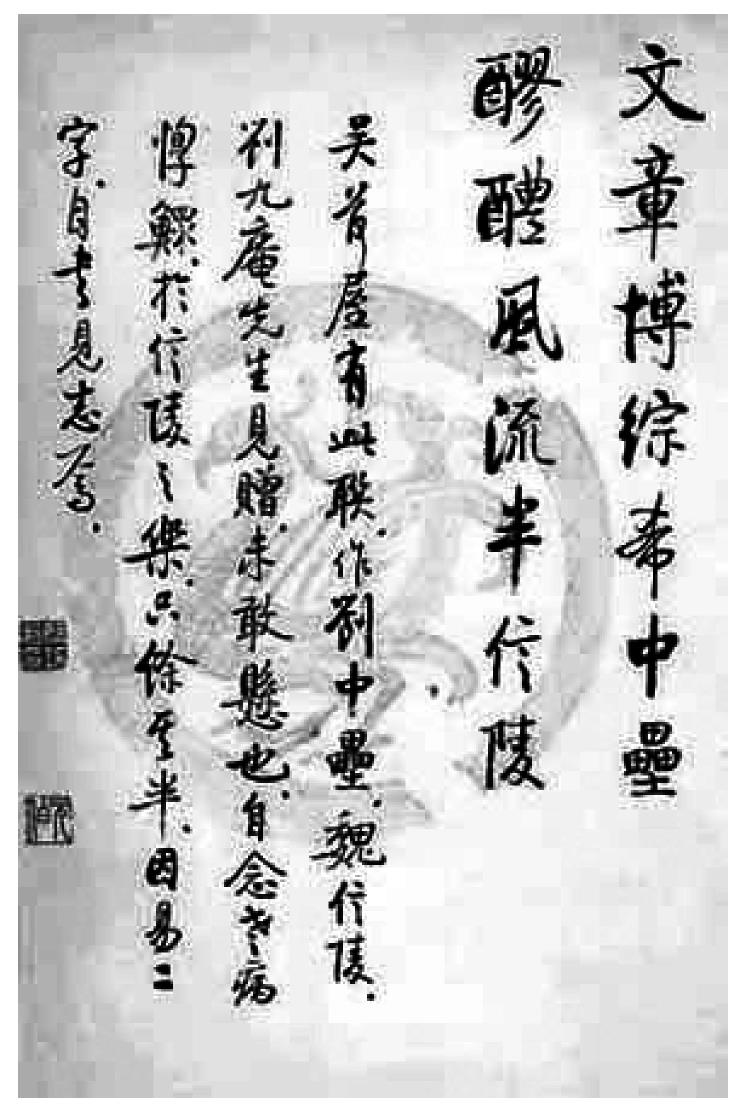 文章博综希中壘
醪醴風流半信陵
吴荷屋有此联作劉中壘魏信陵
刘九庵先生見贈未敢懸也自念老病
惸鰥於信陵之樂只馀至半因易二
字自书見志焉